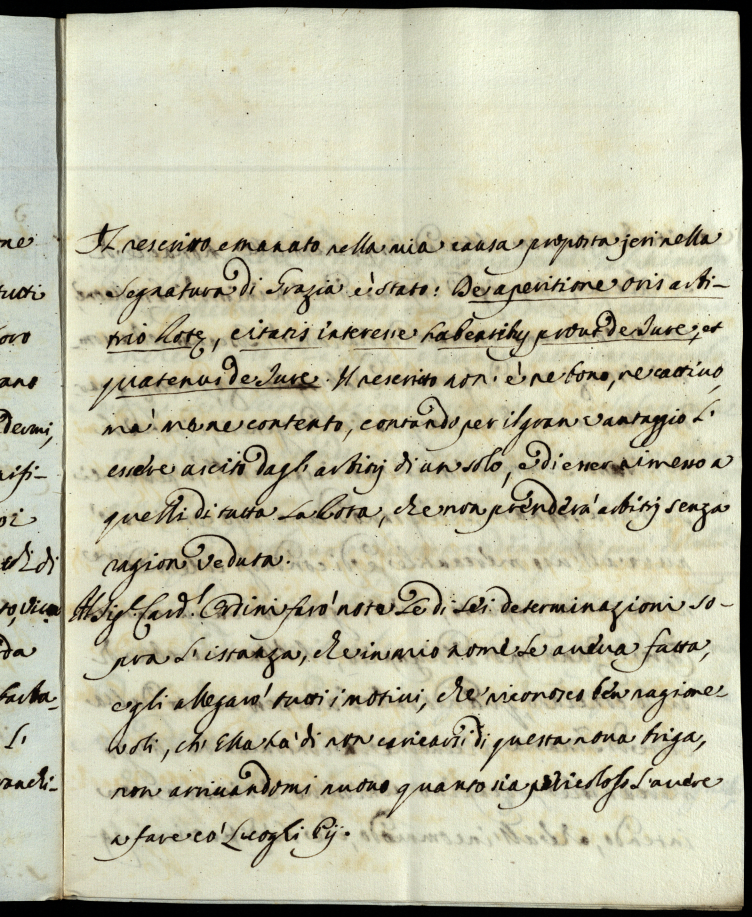 ne
tutti
oro
ano
dermi,
nifi-
oi
di
to, vicen
da
barba-
L'
ranchi-
Il rescritto emanato nella mia causa proposta jeri nella
Segnatura di Grazia è stato: De aperitione oris arbi-
trio Rotę, citatis interesse habentibus prout de Jure, et
quatenus de Jure. Il rescritto non è ne bono, ne cattivo,
mà me ne contento, contando per il gran vantaggio l'
essere uscito dagli arbitrj di un solo, e di esser rimesso a
quelli di tutta la Rota, che non prenderà arbitrj senza
ragion veduta.
Al Sig.r Card.l Cordini farò note le di Lei determinazioni so-
pra l'istanza, che in mio nome Le aveva fatta,
e gli allegarò tutti i motivi, che riconosco ben ragione-
voli, ch'Ella hà di non caricarsi di questa nova briga,
non arrivandomi nuovo quanto sia pericoloso l'avere
a fare co' Luoghi Pij.